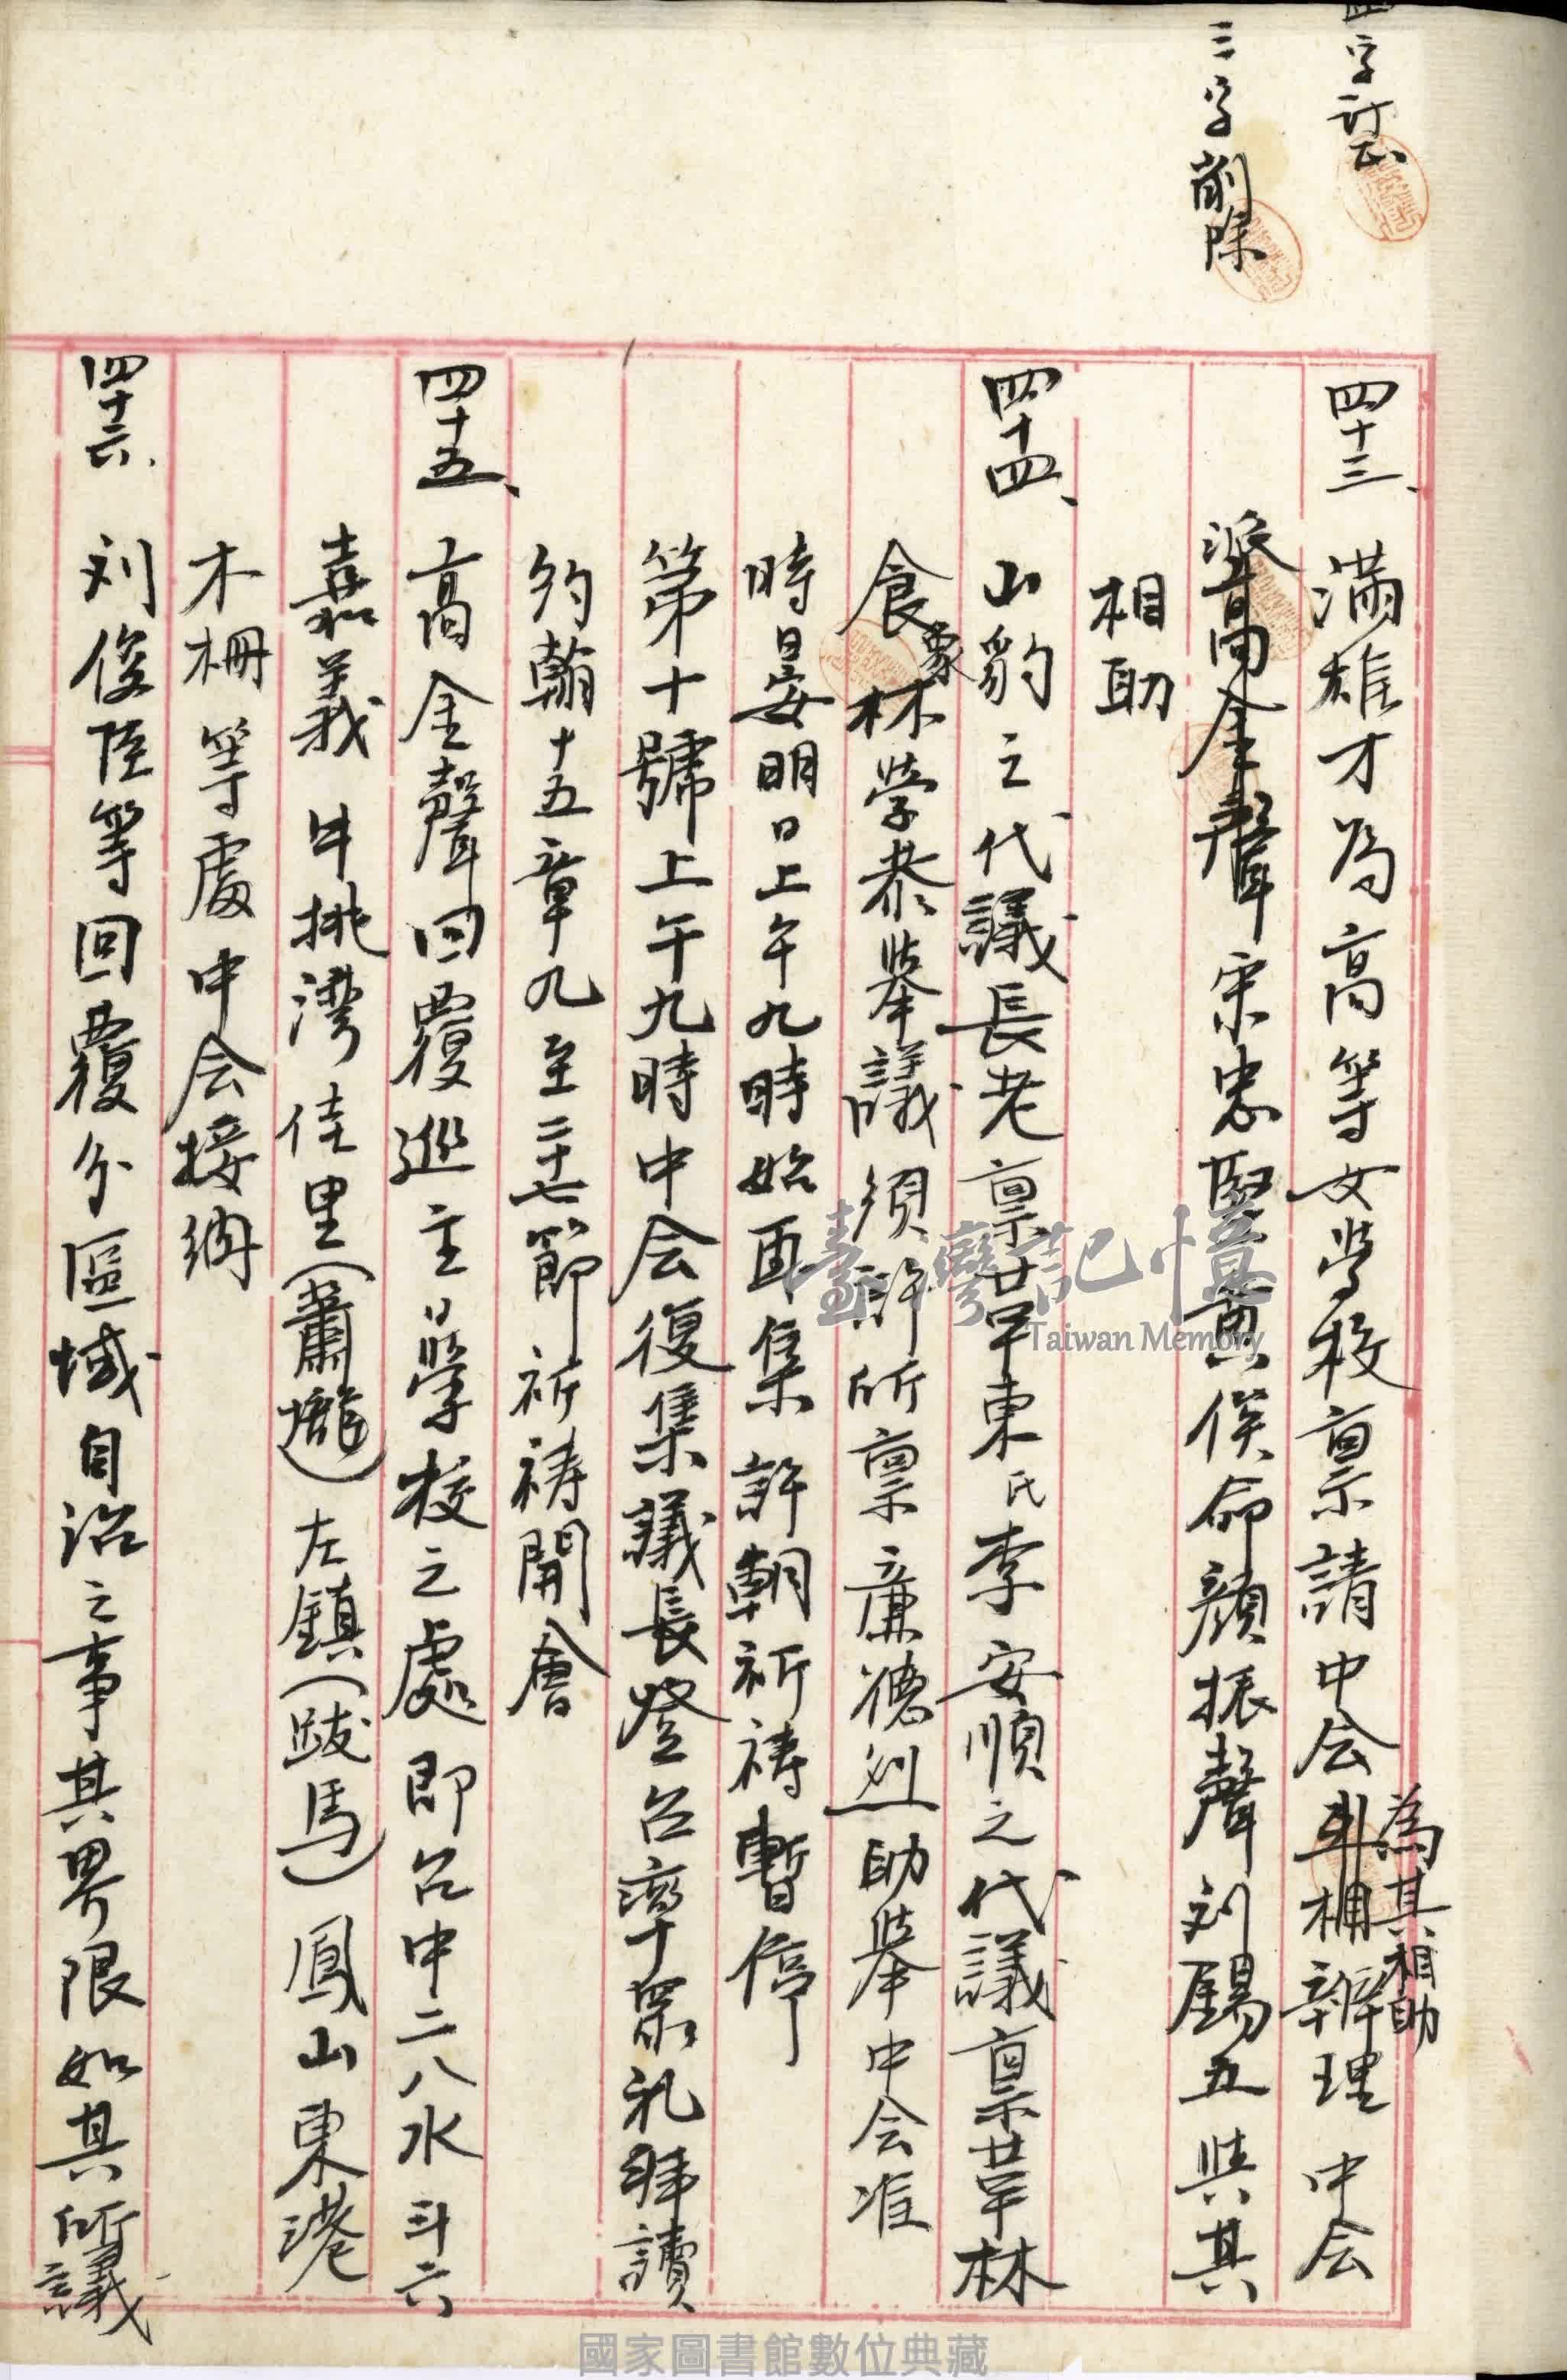 字訂正
三字削除
四十三、滿雄才為高等女學校稟請中会斗柵辦理中会
為其相助
派高金聲宋忠堅黃俟命顏振聲刘錫五與其
相助
四十四、山豹之代議長老稟甘旱東氏李安順之代議稟甘旱林
食象林學恭舉議須許所稟廉德烈助舉中会准
時日晏明日上午九時始再集許朝祈祷暫停
第十號上午九時中会復集議長登台率眾礼拜讀
約翰十五章九至二十七節祈祷開會
四十五、高金聲回覆巡主日學校之處即台中二八水斗六
嘉義牛挑灣佳里(蕭壠)左鎮(跋馬)鳳山東港
木柵等處中会接納
四十六、刘俊臣等回覆分區域自治之事其界限如其所議
臺灣記憶
Taiwan Memory
國家圖書館數位典藏